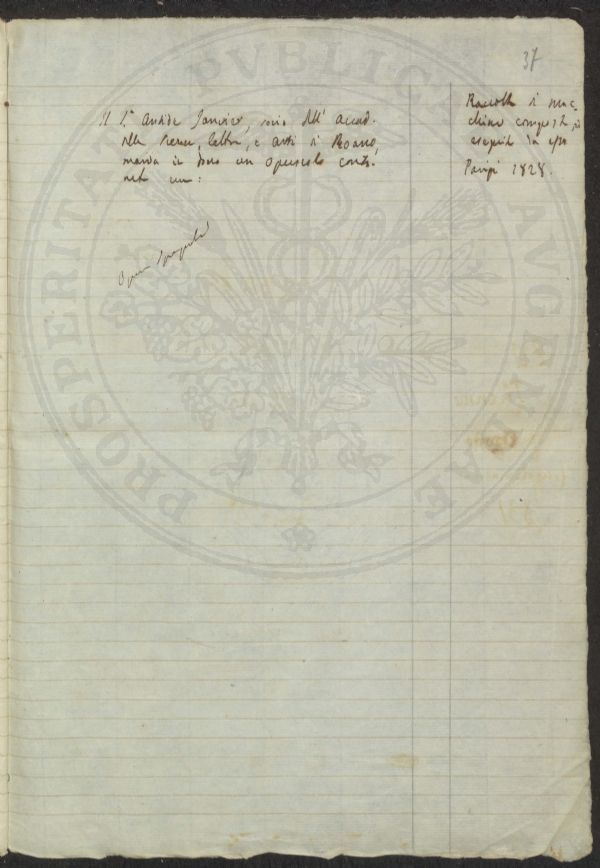 37
Il S.r Antide Janvier, socio dell' Accad.
delle Scienze, Lettere, e Arti di Roano,
manda in dono un opuscolo conte-
nente
Raccolta di mac-
chine composte, ed
eseguite da esso
Parigi 1828.
PROSPERITATI PVBLICAE AVGENDAE